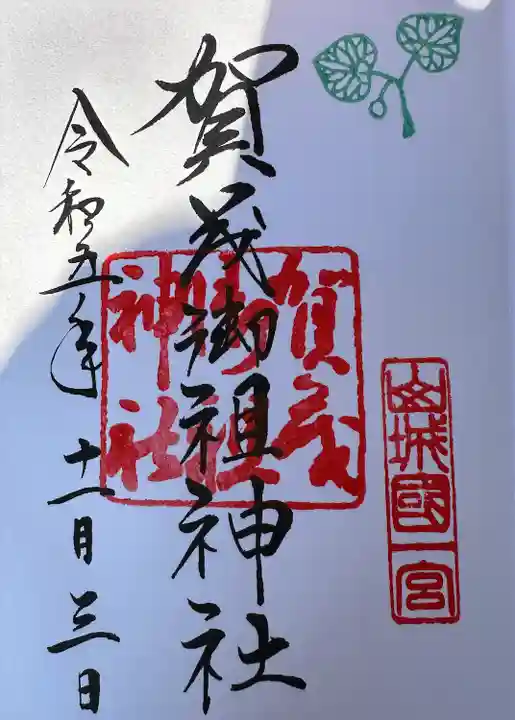 山城國一宮
賀茂御祖神社
賀茂
御祖
神社
令和五年十一月三日